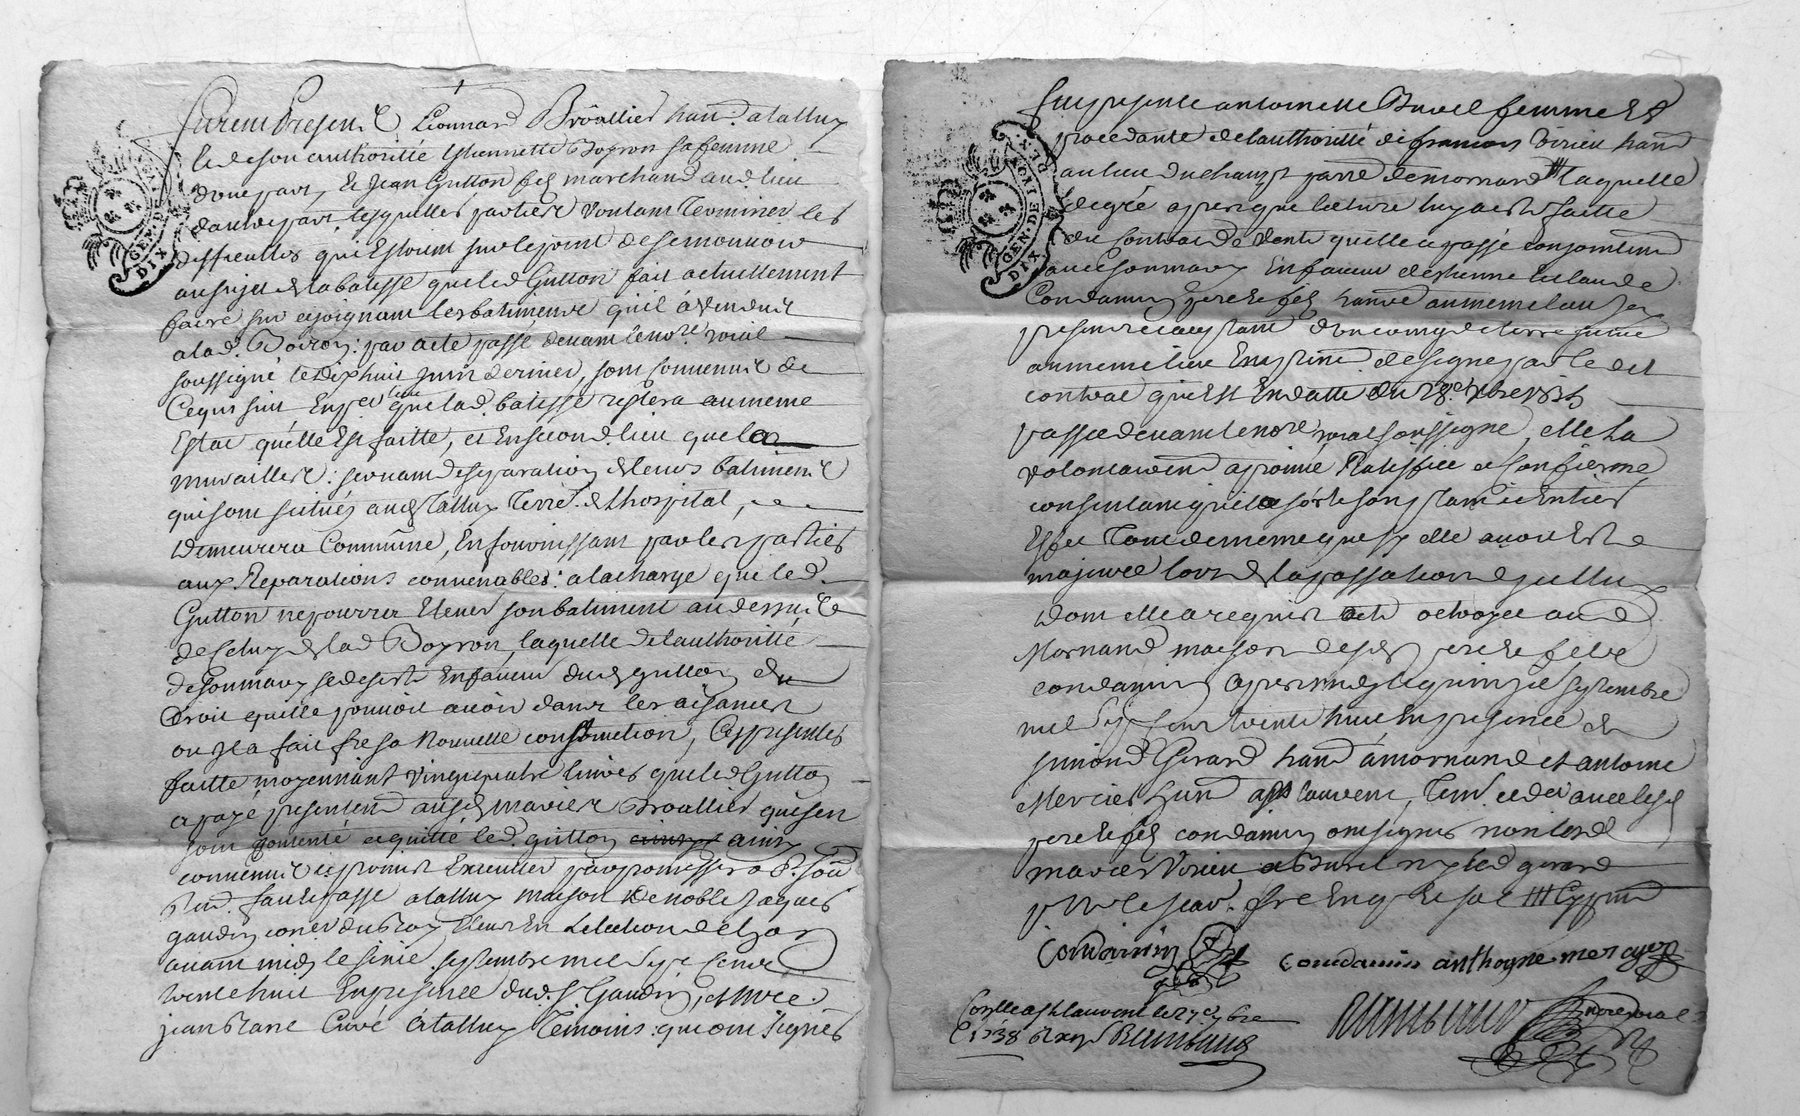 Furent Presents Leonnard Brôallier hand. a talluy
& de son authorittée Estiennette Boyron sa femme
d'une part, Et Jean Gutton fils marchand aud. lieu
d'autre part, lesquelles parties voulant Terminer les
difficultés qui Estoient sur le point de se mouvoir
au sujet de la batisse que led. Gutton fait actuellement
faire sur et joignant les batiments qu'il à vendu
a lad. Boiron: par acte passé devant le nore. roial
soussigné le dix huit juin dernier, sont convenus de
ce qui suit que lad. batisse restera au meme
Estat qu'elle Est faitte, et En second. lieu que la
muraillie: servant de separation de leurs batiments
qui sont scitués aud. Talluy Terre de l'hospital,
Demeurera Commûne, En fournissant par les parties
aux Reparations convenables: a la charge que led.
Gutton ne pourra Elever son batiment au dessus
de celuy de lad. Boyron, laquelle de l'authoritté
de son mary se deserte En faveur dud. Gutton du
Droit qu'elle pouvoit avoir dans les aisances
ou il a fait fre sa Nouvelle construction, Ces presentes
faitte moyennant vingt quatre livres que led. Gutton
a payé presentemt. auxds. mariés Broallier qui s'en
sont contenté et quitté led. gutton ainsy
convenu et promis Executer par promesses
fait et passé a talluy maison De noble Jaques
gaudin coner. du Roy Elu En L'election de Lyon
avant midy le sixie. septembre mil sept cent
trente huit En presence dud. Sr. Gaudin, et mre.
jean Curé à talluy Temoins: qui ont signés
Fut presente antoinette Buvel femme Et
procedante de l'authoritté de francois Virieu hand.
au lieu du champt parre. de mornand laquelle
de gré apres que lecture luy a esté faitte
du Contrat de Vente qu'elle a passé conjointemt.
avec son mary En faveur d'estienne Et claude
Condamin pere et fils hand. au meme lieu
presents et acceptants d'un coing de terre situé
au meme lieu Emplinnt. designé par le dit
contrat qui Est En datte du 28e.
passée devant le nore. roial soussigné, elle l'a
volontairemt. aprouvé Ratiffiée et Confirmé
consentant qu'il sorte son plain et Entier
Effet Tout de meme que si elle avoit Esté
majeure lors de la passation d'icelluy
Dont elle a requis acte octroyée aud.
Mornand maison desd. pere et fils
condamin apres midy le quinzie septembre
mil sept cent trente huit En presence de
simond Gerard hand. à mornand et antoine
Mercier hand. a St. lauvent, Tem. avec lesd.
pere et fils condamin ont signés non lesd.
mariés Virieu et Buvel ny led. gerard
pour ne scav. fre Enq. et
Condamin condamin anthoyne mercyer
Conlle a St lauvent le 27 7bre
1738